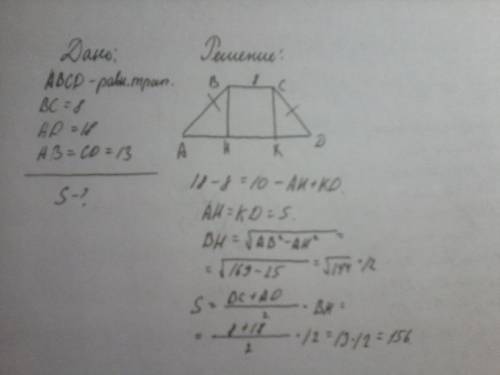 Дано:
ABCD - равн. трап.
BC = 8
AD = 18
AB = CD = 13
S - ?
Решение:
B 8 C
A H K D
18 - 8 = 10 - AH + KD.
AH = KD = 5.
BH = √AB² - AH² =
= √169 - 25 = √144 = 12
S = BC + AD / 2 · BH =
= 8 + 18 / 2 · 12 = 13 · 12 = 156